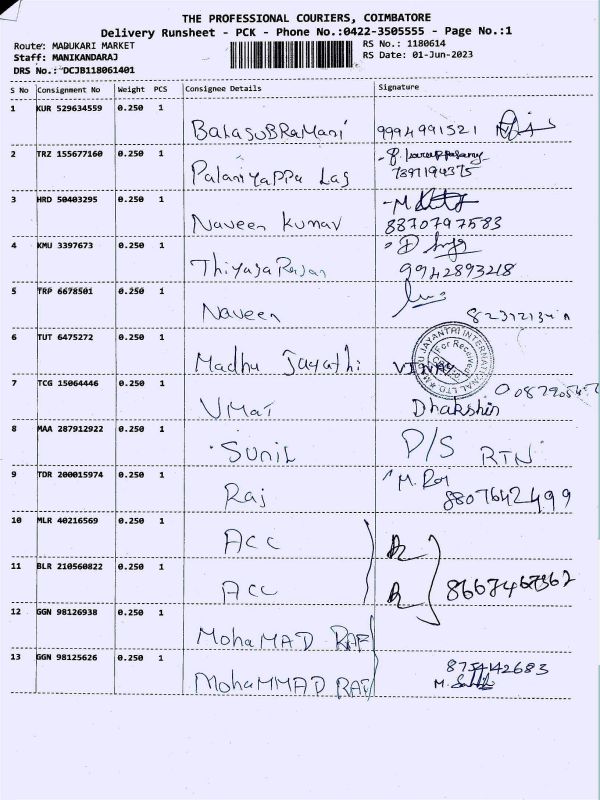 THE PROFESSIONAL COURIERS, COIMBATORE
Delivery Runsheet - PCK - Phone No.:0422-3505555 - Page No.:1
Route: MADUKARI MARKET RS No.: 1180614
Staff: MANIKANDARAJ RS Date: 01-Jun-2023
DRS No.: DCJB118061401
S No Consignment No Weight PCS Consignee Details Signature
1 KUR 529634559 0.250 1
BalasuBRaMani 9994991521
2 TRZ 155677160 0.250 1
PalaniyaPPa Lag 7397194375
3 HRD 50403295 0.250 1
Naveen Kumar 8870797583
4 KMU 3397673 0.250 1
ThiyagaRajan 9942893218
5 TRP 6678501 0.250 1
Naveen
6 TUT 6475272 0.250 1
Madhu Jayathi VINAY
JAYANTHI INTERNATIONAL LTD
For Received
7 TCG 15064446 0.250 1
UMai Dhakshin
8 MAA 287912922 0.250 1
Sunil D/S RTN
9 TDR 200015974 0.250 1
Raj M. Raj 8807642499
10 MLR 40216569 0.250 1
Acc
11 BLR 210560822 0.250 1
Acc
12 GGN 98126938 0.250 1
MohaMAD RAF
13 GGN 98125626 0.250 1
MohaMMAD RAF 8754142683